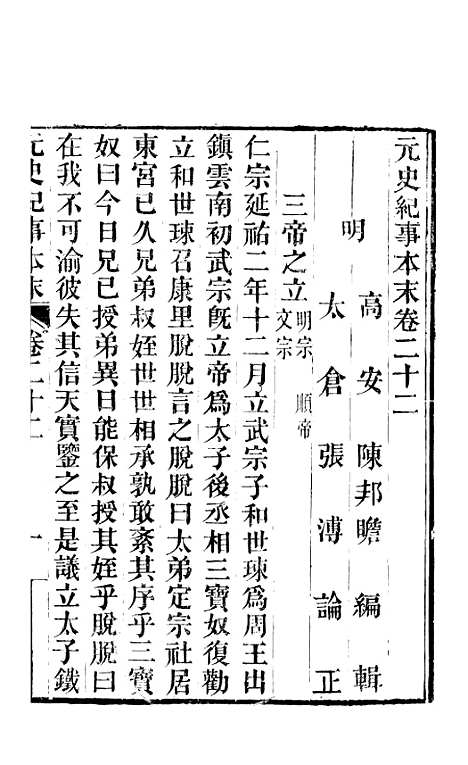 元史紀事本末卷二十二
明 高安 陳邦瞻 編輯
太倉 張溥 論正
三帝之立 明宗 文宗 順帝
仁宗延祐二年十二月立武宗子和世㻋爲周王出
鎮雲南初武宗旣立帝爲太子後丞相三寶奴復勸
立和世㻋召康里脫脫言之脫脫曰太弟定宗社居
東宮已久兄弟叔姪世世相承孰敢紊其序乎三寶
奴曰今日兄已授弟異日能保叔授其姪乎脫脫曰
在我不可渝彼失其信天實鑒之至是議立太子鐵
元史紀事本末 卷二十二 一